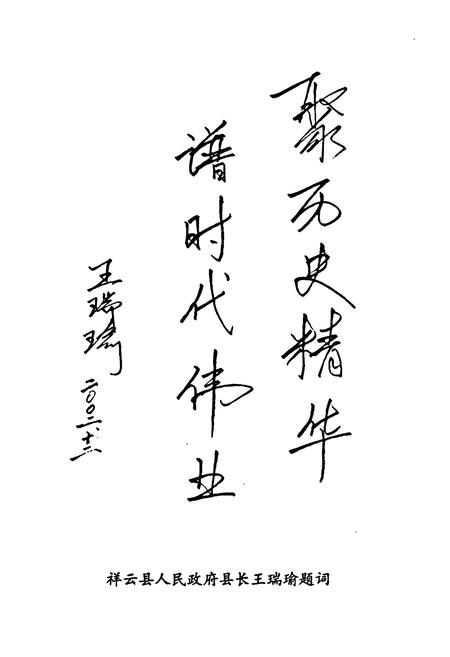 聚历史精华
谱时代伟业
王瑞瑜
二〇〇二、十二
祥云县人民政府县长王瑞瑜题词